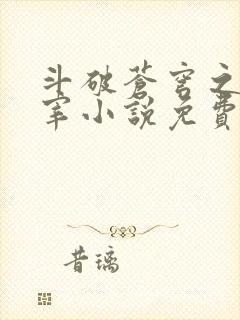 斗破蒼穹之
宰小說免費
昔璃